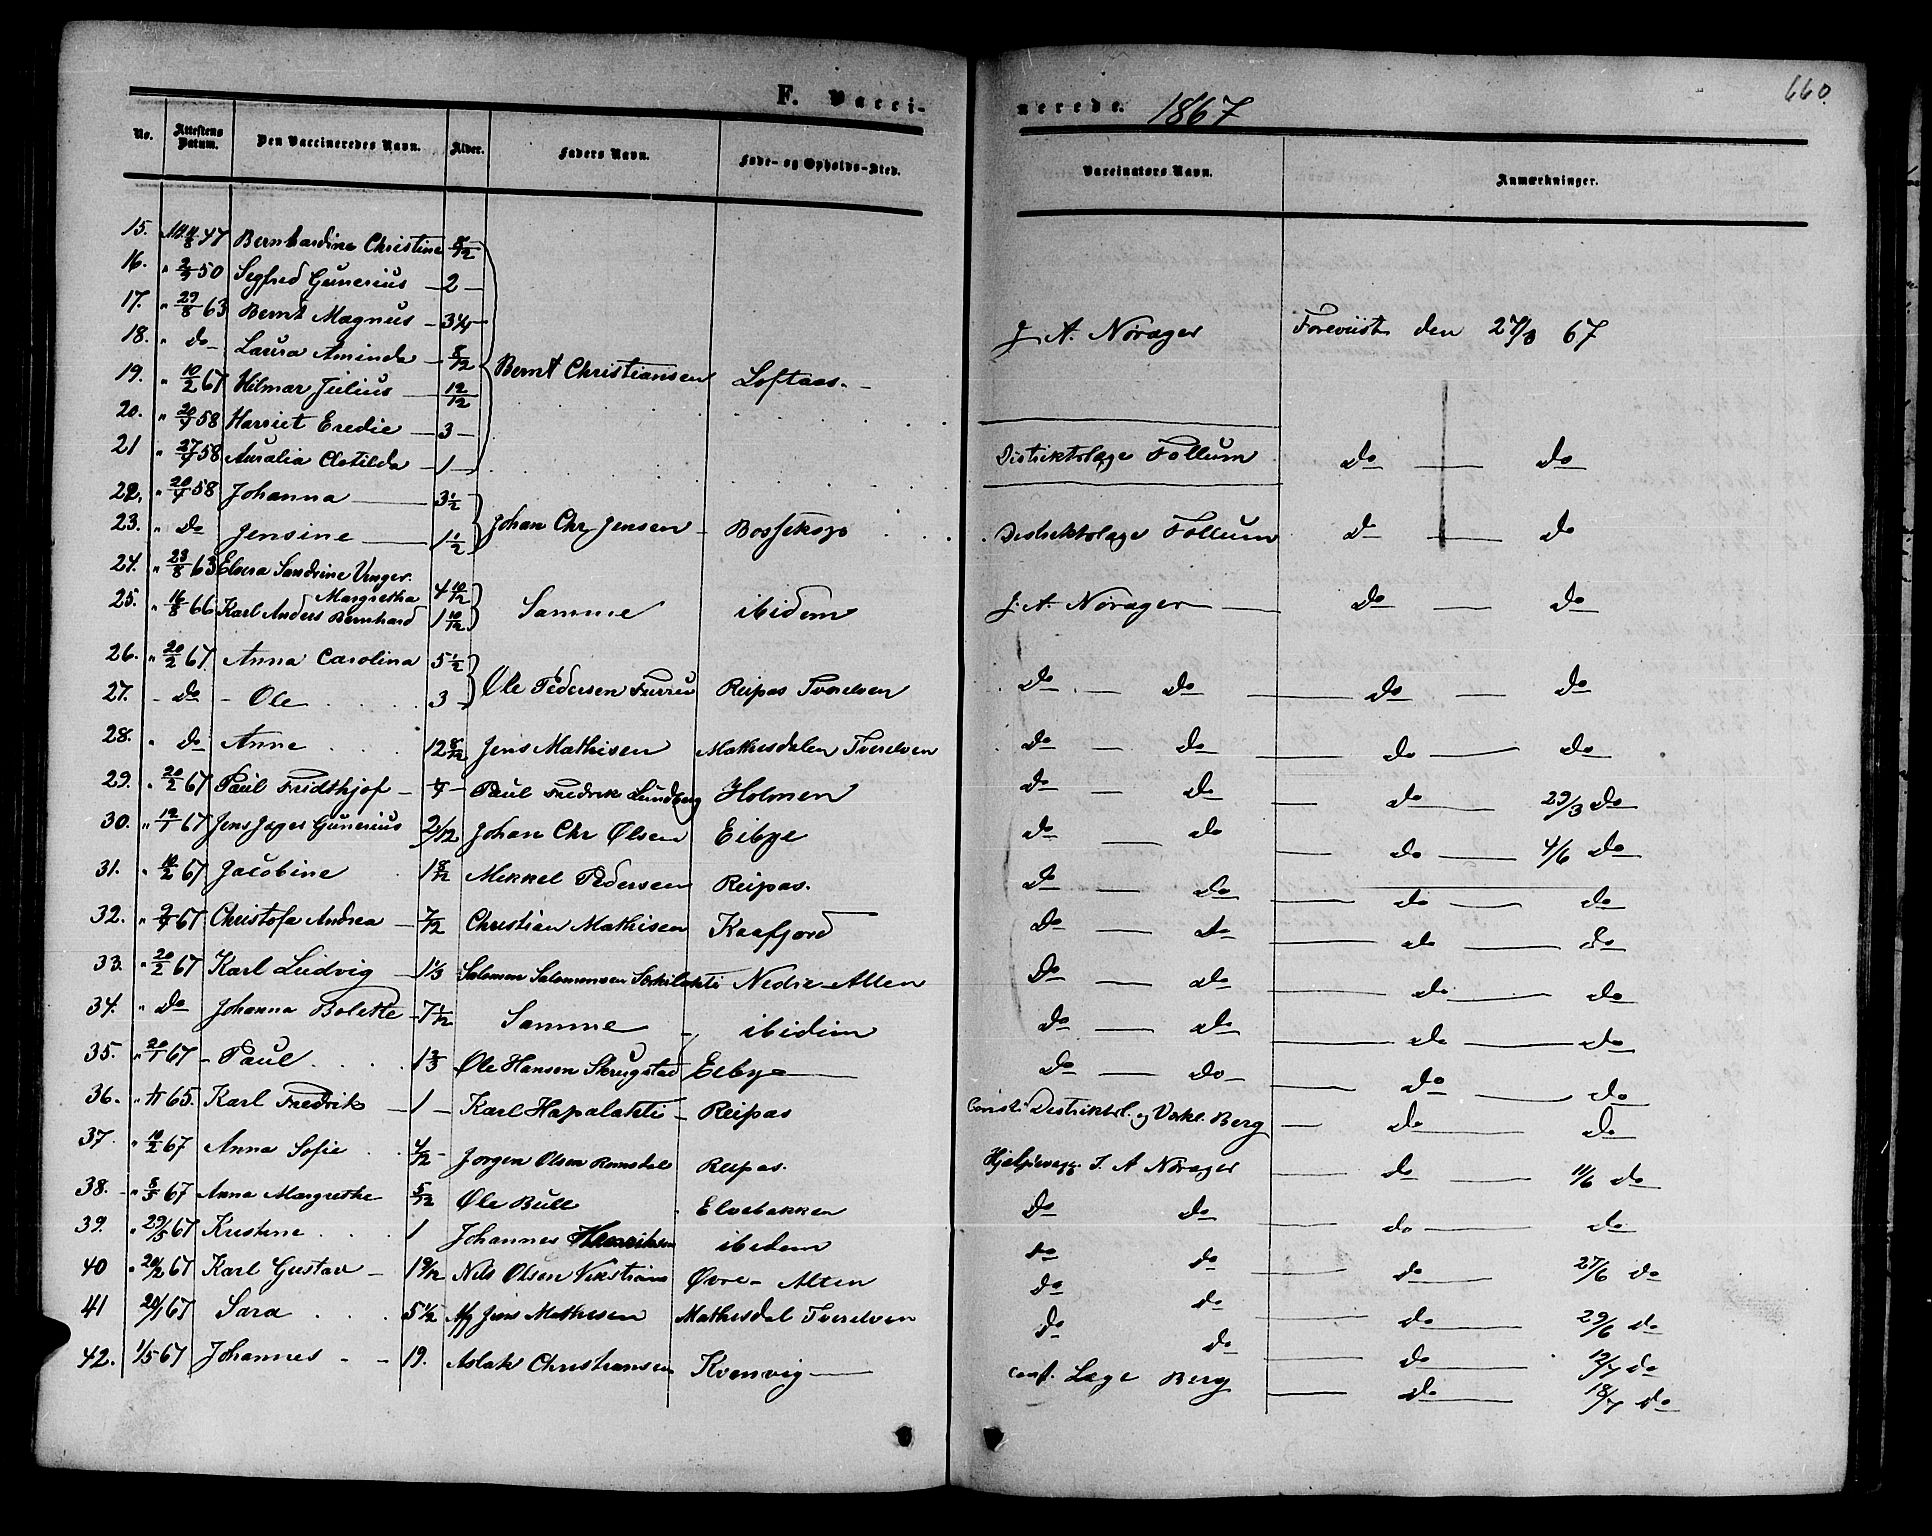 660.
F. Vacci-
nerede. 1867
No. Attestens Datum. Den Vaccineredes Navn. Alder. Faders Navn. Føde- og Opholds-Sted. Vaccinators Navn. Anmærkninger.
15. 47 Bernhardine Christine 5/12
16. " 50 Segfred Gunerius - 2 -
17. " 29/8 63 Bernt Magnus - 3¼ - J. A. Norager Foreviist den 27/3 67
18. " do - Laura Aminda - 8/12
19. " 10/2 67 Hilmar Julius - 12/12 Bernt Christiansen Loftaas. -
20. " 58 Harriet Eredie - 3 -
21 " 58 Auralia Clotilda - 1 - Distriktslæge Follum do - do
22. " 58 Johanna - 3½
23. " do Jensine - 1½ Johan Chr Jensen - Bossekop Distriktslæge Follum do - do
24. " 23/8 63 Elvera Sandrine Unger Margretha 4 10/12
25. " 16/8 66 Karl Anders Bernhard 1 10/12 Samme ibidem J. A. Norager - do - do
26. " 20/2 67 Anna Carolina 5½
27. - do - Ole 3 - Ole Pedersen Furru Reipas Tverelven do - do - do - do
28. " do Anne 12 8/12 Jens Mathisen Mathisdalen Tverelven do - do - do - do
29. " 20/2 67 Paul Fridthjof - Paul Fredrik Lundberg Holmen do - do - do 29/3 do
30. " 67 Jens Jæger Gunerius 2/12 Johan Chr Olsen Eibye do - do - do 4/6 do
31. " 10/2 67 Jacobine 1 8/12 Mikkel Pedersen Reipas. do - do - do - do
32. " 67 Christofa Andrea - 7/12 Christian Mathisen Kaafjord do - do - do - do
33. " 20/2 67 Karl Ludvig - 1⅓ Salomon Salomonsen Nedre-Alten do - do - do - do
34. " do Johanna Bolette - 7½ Samme - ibidem do - do - do - do
35. " 20/1 67 - Paul 1⅔ Ole Hansen Skrugstad Eibye - do - do - do - do
36. " 65. Karl Fredrik - 1 - Karl Hapalahti - Reipas Const. Distriktsl. og Berg - do - do
37. " 10/2 67 Anna Sofie 4/12 - Jørgen Olsen Romsdal Reipas. J. A Norager - do 11/6 do
38. - " 5/5 67 Anna Margrethe 5/12 Ole Bull Elvebakken do do - do - do
39. " 29/5 67 Kristine 1 Johannes Henriksen ibidem do do - do 27/6 do
40 " 20/2 67 Karl Gustav - 1 9/12 Nils Olsen Øvre - Alten do do - do 29/6 do
41 20/1 67 Sara 5½ Jens Mathisen Mathisdal Tverelven do do - do 12/7 do
42. 1/5 67 Johannes - - 19. Aslak Christiansen Kvenvig - Const. Læge Berg - do 18/7 do